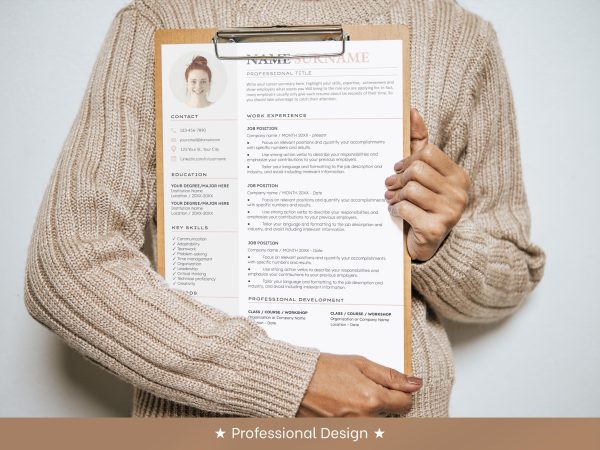 NAME SURNAME
PROFESSIONAL TITLE
Write your career summary here. Highlight your skills, expertise, achievements and
show employers what assets you Will bring to the role you are applying for. In fact,
many employers usually only give each resume about six seconds of their time. So
you should take advantage to catch their attention.
CONTACT
123 456 7890
yourname@domainname
123 Your St, Your City
LinkedIn.com/in/username
EDUCATION
YOUR DEGREE/MAJOR HERE
Institution Name
Location / 20XX-20XX
YOUR DEGREE/MAJOR HERE
Institution Name
Location / 20XX-20XX
KEY SKILLS
Communication
Adaptability
Teamwork
Problem-solving
Time management
Organization
Leadership
Critical thinking
Technical proficiency
Creativity
WORK EXPERIENCE
JOB POSITION
Company name / MONTH 20XX - present
• Focus on relevant points and quantify your accomplishments
with specific numbers and results.
• Use strong action verbs to describe your responsibilities and
emphasize your contributions to your previous employers.
• Tailor your language and formatting to the job description and
industry, and avoid including irrelevant information.
JOB POSITION
Company name / MONTH 20XX - Date
• Focus on relevant points and quantify your accomplishments
with specific numbers and results.
• Use strong action verbs to describe your responsibilities and
emphasize your contributions to your previous employers.
• Tailor your language and formatting to the job description and
industry, and avoid including irrelevant information.
JOB POSITION
Company name / MONTH 20XX - Date
• Focus on relevant points and quantify your accomplishments
with specific numbers and results.
• Use strong action verbs to describe your responsibilities and
emphasize your contributions to your previous employers.
• Tailor your language and formatting to the job description and
industry, and avoid including irrelevant information.
PROFESSIONAL DEVELOPMENT
CLASS / COURSE / WORKSHOP
Organization or Company Name
Location - Date
CLASS / COURSE / WORKSHOP
Organization or Company Name
Location - Date
★ Professional Design ★